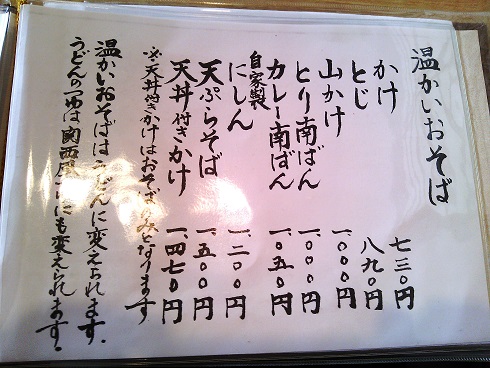 温かいおそば
かけ 七三〇円
とじ 八九〇円
山かけ 一、〇〇〇円
とり南ばん 一、〇〇〇円
カレー南ばん 一、〇五〇円
自家製 にしん 一、二〇〇円
天ぷらそば 一、五〇〇円
天丼付きかけ 一、四七〇円
※天丼付きかけはおそばのみとなります
温かいおそばはうどんに変えられます。
うどんのつゆは関西風にも変えられます。